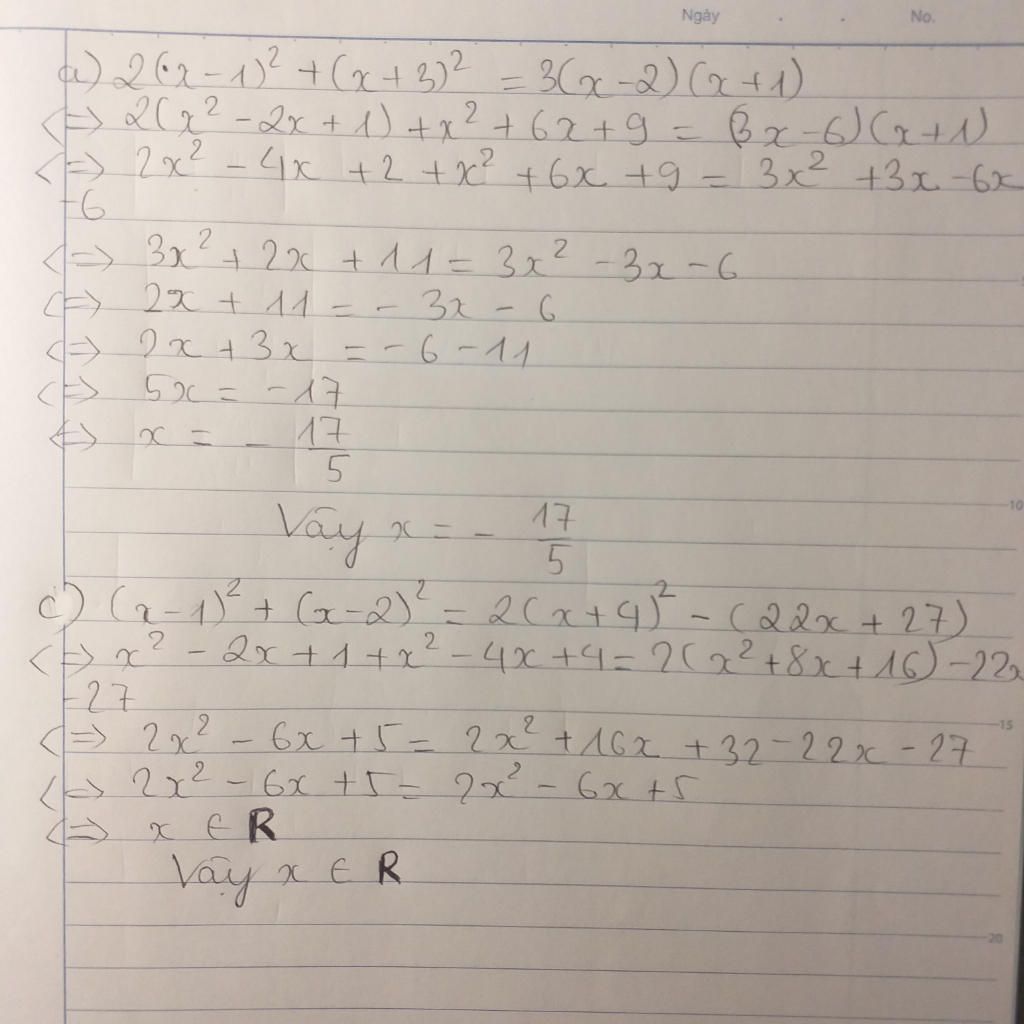 Ngày . . No.
a) 2(x-1)² + (x+3)² = 3(x-2)(x+1)
<=> 2(x² - 2x + 1) + x² + 6x + 9 = (3x-6)(x+1)
<=> 2x² - 4x + 2 + x² + 6x + 9 = 3x² + 3x - 6x
-6
<=> 3x² + 2x + 11 = 3x² - 3x - 6
<=> 2x + 11 = - 3x - 6
<=> 2x + 3x = -6 - 11
<=> 5x = -17
<=> x = - 17/5
10
Vậy x = - 17/5
c) (x-1)² + (x-2)² = 2(x+4)² - (22x + 27)
<=> x² - 2x + 1 + x² - 4x + 4 = 2(x² + 8x + 16) - 22x
-27
15
<=> 2x² - 6x + 5 = 2x² + 16x + 32 - 22x - 27
<=> 2x² - 6x + 5 = 2x² - 6x + 5
<=> x ∈ R
Vậy x ∈ R
20